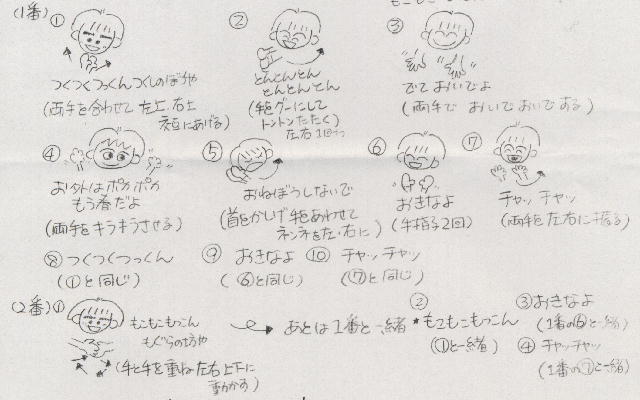 (1番)
①
つくつくつっくんつくしのぼうや
(両手を合わせて 左上、右上
交互にあげる)
②
とんとんとん
とんとんとん
(手をグーにして
トントンたたく)
左右1回ずつ
③
でて おいでよ
(両手で おいでおいでする)
④
お外はポカポカ
もう春だよ
(両手をキラキラさせる)
⑤
おねぼうしないで
(首をかしげ手をあわせて
ネンネを左・右に)
⑥
おきなよ
(手拍子2回)
⑦
チャッ チャッ
(両手を左右に振る)
⑧ つくつくつっくん
(①と同じ)
⑨ おきなよ
(⑥と同じ)
⑩ チャッ チャッ
(⑦と同じ)
(2番)①
もこもこもっこん
もぐらの坊や
(手と手を重ね左右上下に
動かす)
あとは1番と一緒
②
*もこもこもっこん
(①と一緒)
③おきなよ
(1番の⑥と一緒)
④ チャッチャッ
(1番の⑦と一緒)